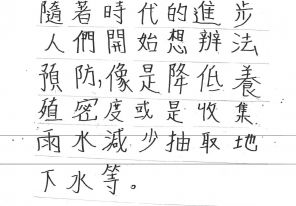 隨著時代的進步
人們開始想辦法
預防,像是降低養
殖密度或是收集
雨水減少抽取地
下水等。